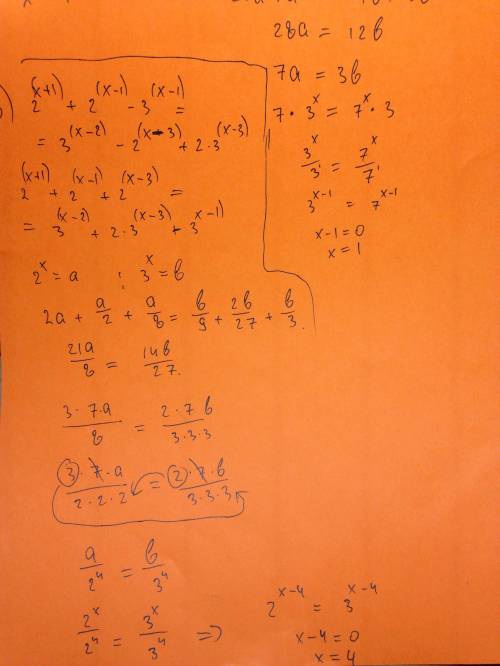 28a = 12b
7a = 3b
7 · 3^x = 7^x · 3
3^x/3' = 7^x/7'
3^(x-1) = 7^(x-1)
x-1=0
x=1
2^(x+1) + 2^(x-1) - 3^(x-1) =
= 3^(x-2) - 2^(x-3) + 2·3^(x-3)
2^(x+1) + 2^(x-1) + 2^(x-3) =
= 3^(x-2) + 2·3^(x-3) + 3^(x-1)
2^x = a ; 3^x = b
2a + a/2 + a/8 = b/9 + 2b/27 + b/3.
21a/8 = 14b/27.
3·7·a/8 = 2·7b/3·3·3
3·7·a/2·2·2 = 2·7·b/3·3·3
a/2^4 = b/3^4
2^x/2^4 = 3^x/3^4 =>
2^(x-4) = 3^(x-4)
x-4=0
x=4